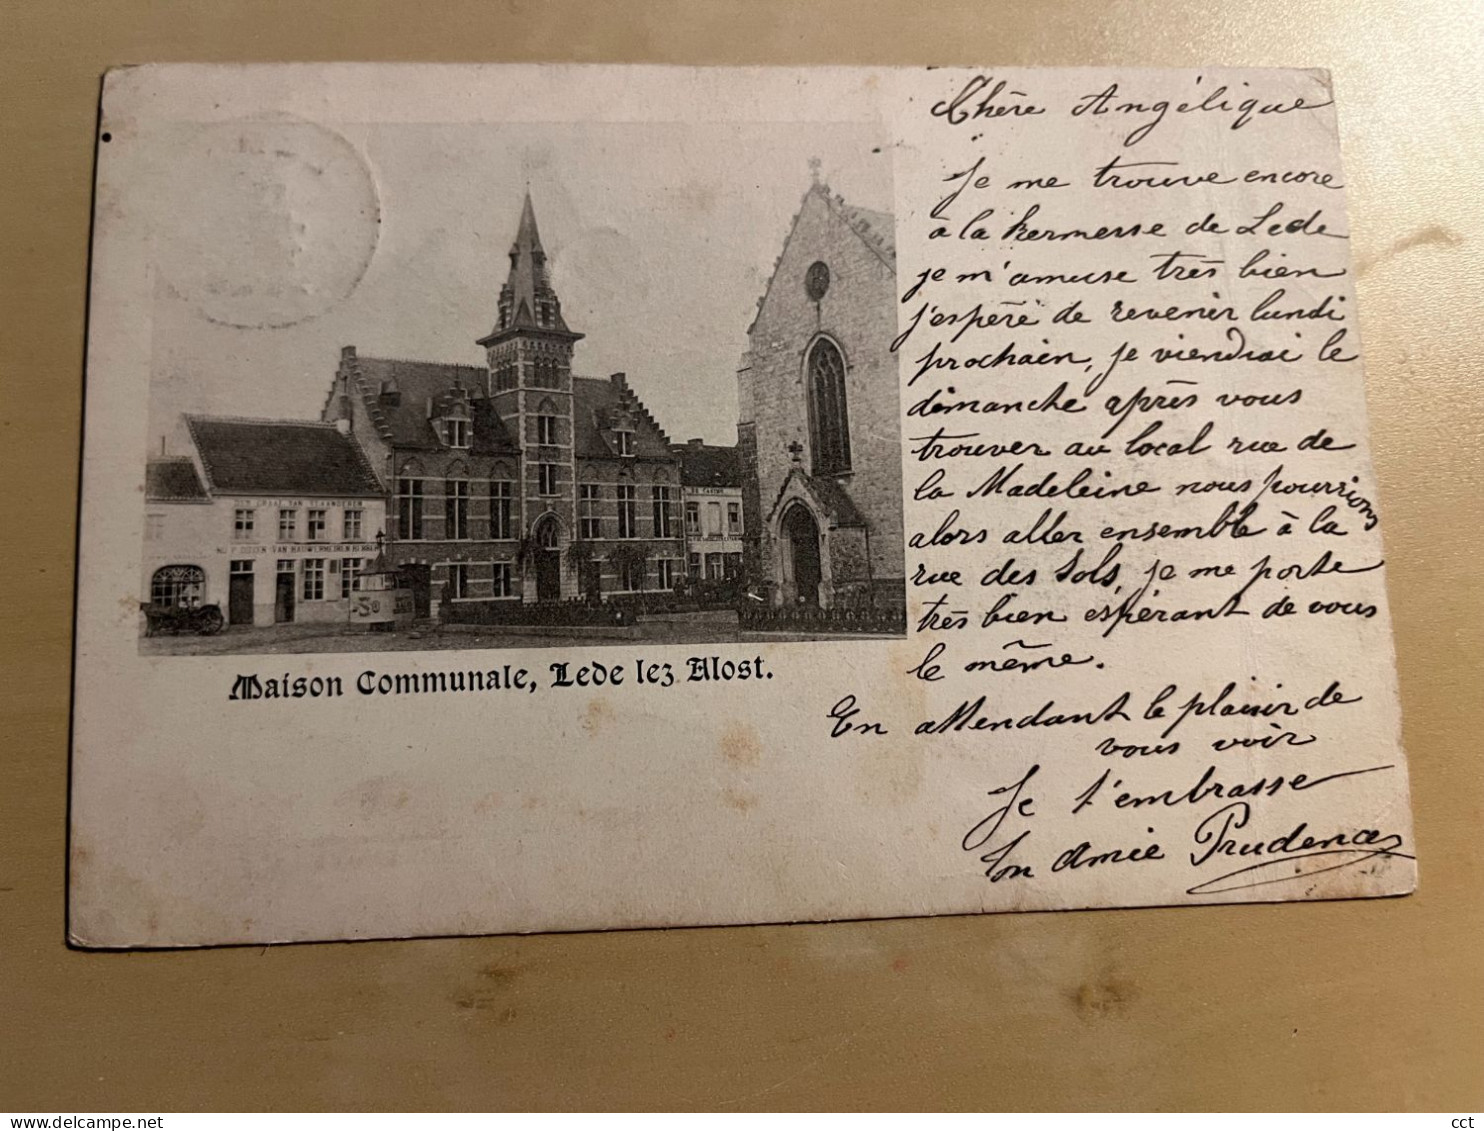 Chère Angélique
Je me trouve encore
à la kermesse de Lede
je m'amuse très bien
j'espère de revenir lundi
prochain, je viendrai le
dimanche après vous
trouver au local rue de
la Madeleine nous pourrions
alors aller ensemble à la
rue des Sols, je me porte
très bien espérant de vous
le même.
En attendant le plaisir de
vous voir
Je t'embrasse
Ton Amie Prudence
Maison Communale, Lede lez Alost.
cct